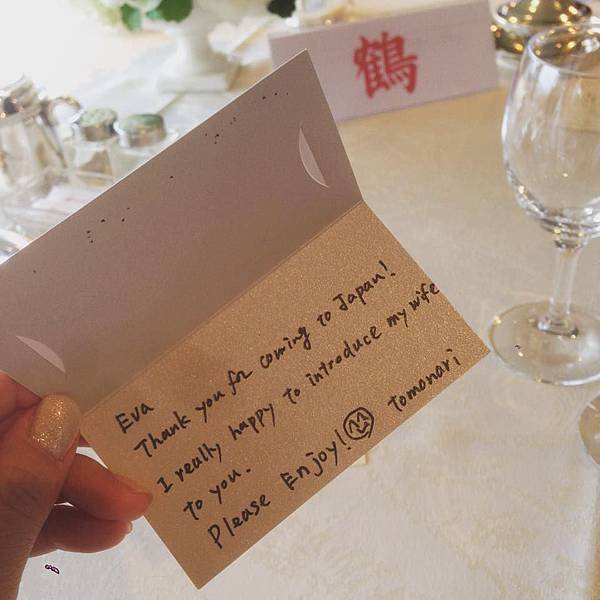 鶴
Eva
Thank you for coming to Japan!
I really happy to introduce my wife
to you.
Please Enjoy!
tomonari